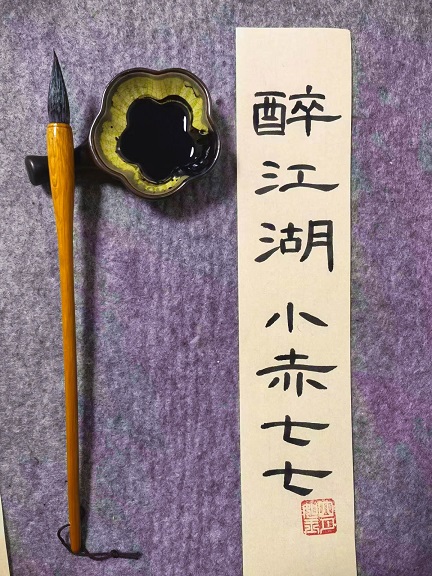 醉江湖 小赤七七